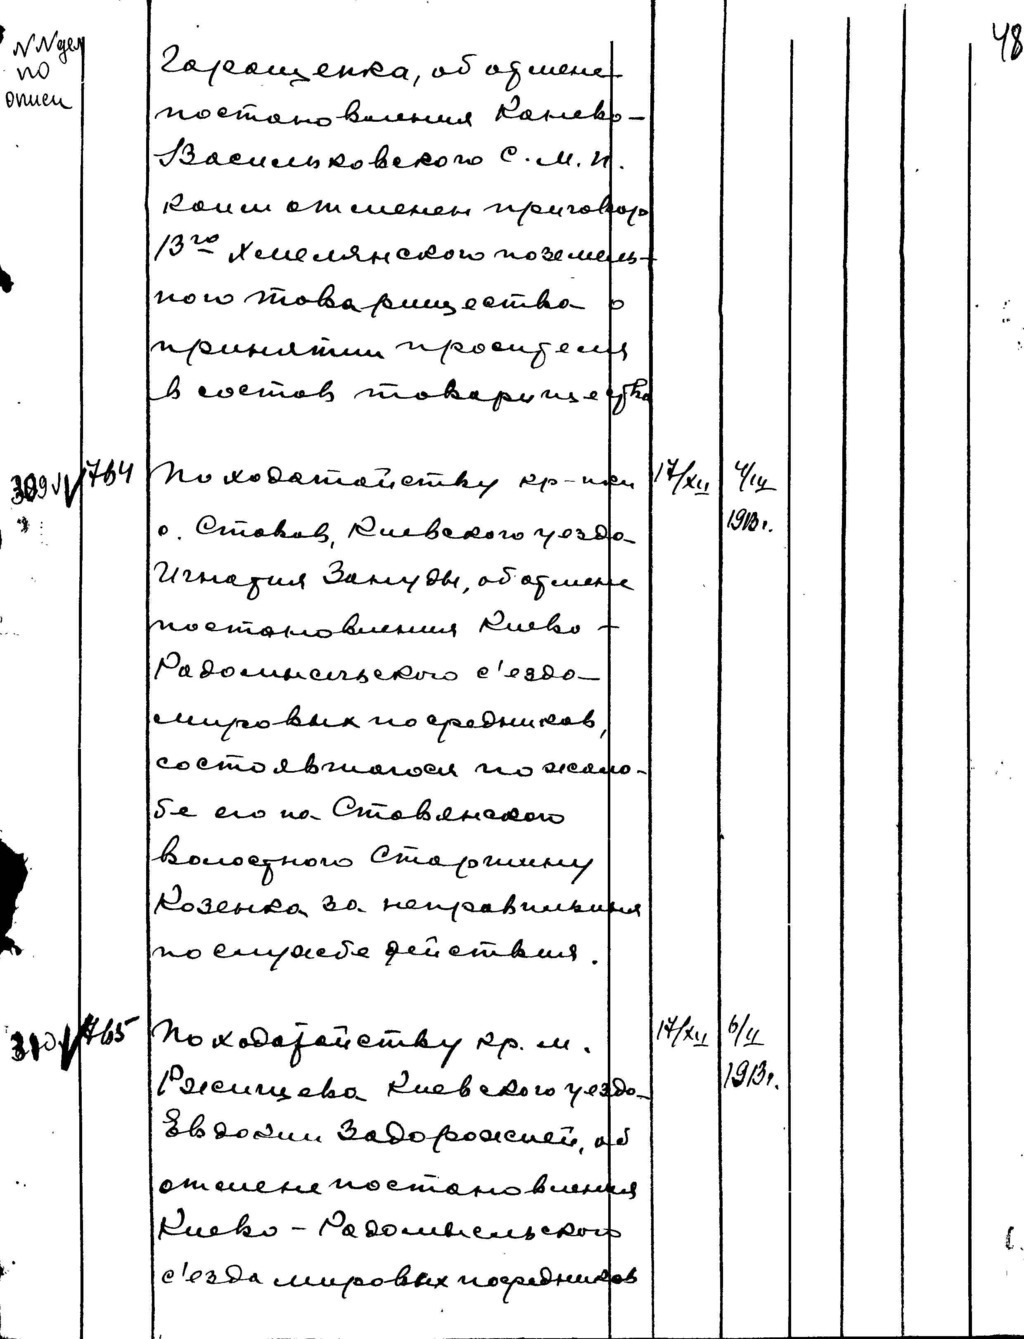 NN дел
по
описи
48
Гаращенка, об отмене
постановления Канево-
Васильковского С.М.П.
коим отменен приговор
13го Хмелянского поземель-
ного товарищества о
принятии просителя
в состав товарищества
309 764 По ходатайству кр-на 17/XII 4/IV
с. Ставов, Киевского уезда 1913г.
Игнатия Зануды, об отмене
постановления Киево-
Радомысльского с'езда
мировых посредников,
состоявшагося по жало-
бе его на Ставянского
волостного Старшину
Козенка за неправильныя
по службе действия.
310 765 По ходатайству кр. м. 17/XII 6/II
Ржищева Киевского уезда 1913г.
Евдокии Задорожней, об
отмене постановления
Киево-Радомысльского
с'езда мировых посредников